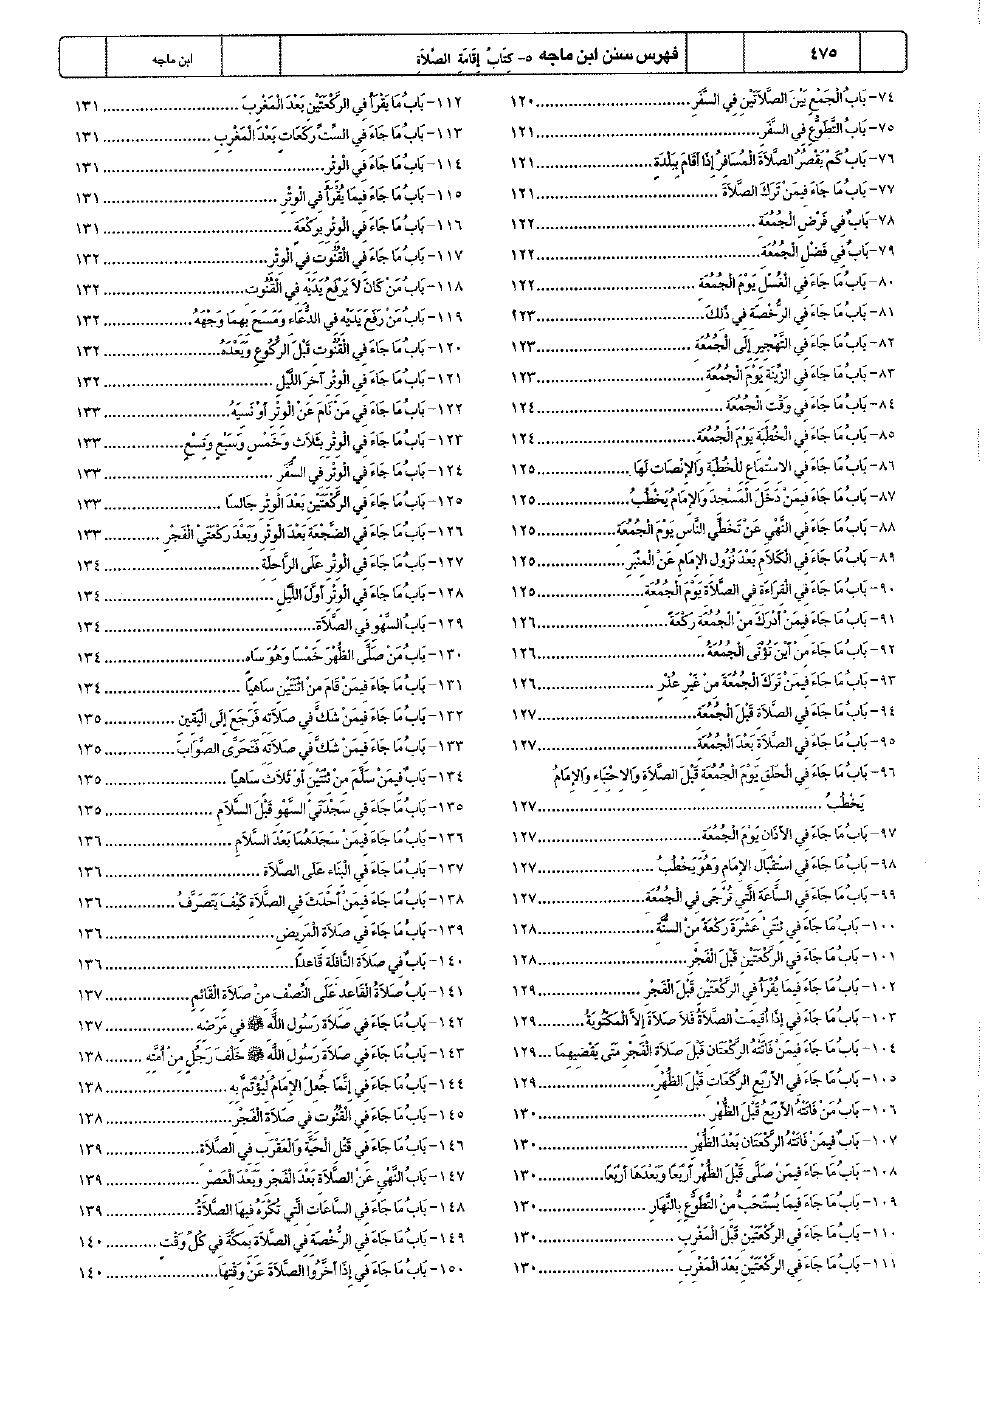 ٤٧٥
فهرس سنن ابن ماجه ٥- كِتَابُ إِقَامَةِ الصَّلَاةِ
ابن ماجه
٧٤- بَابُ الْجَمْعِ بَيْنَ الصَّلَاتَيْنِ فِي السَّفَرِ ١٢٠
٧٥- بَابُ التَّطَوُّعِ فِي السَّفَرِ ١٢١
٧٦- بَابُ كَمْ يَقْصُرُ الصَّلَاةَ الْمُسَافِرُ إِذَا أَقَامَ بِبَلْدَةٍ ١٢١
٧٧- بَابُ مَا جَاءَ فِيمَنْ تَرَكَ الصَّلَاةَ ١٢١
٧٨- بَابٌ فِي فَرْضِ الْجُمُعَةِ ١٢٢
٧٩- بَابٌ فِي فَضْلِ الْجُمُعَةِ ١٢٢
٨٠- بَابُ مَا جَاءَ فِي الْغُسْلِ يَوْمَ الْجُمُعَةِ ١٢٢
٨١- بَابُ مَا جَاءَ فِي الرُّخْصَةِ فِي ذَلِكَ ١٢٣
٨٢- بَابُ مَا جَاءَ فِي التَّهْجِيرِ إِلَى الْجُمُعَةِ ١٢٣
٨٣- بَابُ مَا جَاءَ فِي الزِّينَةِ يَوْمَ الْجُمُعَةِ ١٢٣
٨٤- بَابُ مَا جَاءَ فِي وَقْتِ الْجُمُعَةِ ١٢٤
٨٥- بَابُ مَا جَاءَ فِي الْخُطْبَةِ يَوْمَ الْجُمُعَةِ ١٢٤
٨٦- بَابُ مَا جَاءَ فِي الاسْتِمَاعِ لِلْخُطْبَةِ وَالإِنْصَاتِ لَهَا ١٢٥
٨٧- بَابُ مَا جَاءَ فِيمَنْ دَخَلَ الْمَسْجِدَ وَالإِمَامُ يَخْطُبُ ١٢٥
٨٨- بَابُ مَا جَاءَ فِي النَّهْيِ عَنْ تَخَطِّي النَّاسِ يَوْمَ الْجُمُعَةِ ١٢٥
٨٩- بَابُ مَا جَاءَ فِي الْكَلَامِ بَعْدَ نُزُولِ الإِمَامِ عَنِ الْمِنْبَرِ ١٢٥
٩٠- بَابُ مَا جَاءَ فِي الْقِرَاءَةِ فِي الصَّلَاةِ يَوْمَ الْجُمُعَةِ ١٢٥
٩١- بَابُ مَا جَاءَ فِيمَنْ أَدْرَكَ مِنَ الْجُمُعَةِ رَكْعَةً ١٢٦
٩٢- بَابُ مَا جَاءَ مِنْ أَيْنَ تُؤْتَى الْجُمُعَةُ ١٢٦
٩٣- بَابُ مَا جَاءَ فِيمَنْ تَرَكَ الْجُمُعَةَ مِنْ غَيْرِ عُذْرٍ ١٢٦
٩٤- بَابُ مَا جَاءَ فِي الصَّلَاةِ قَبْلَ الْجُمُعَةِ ١٢٧
٩٥- بَابُ مَا جَاءَ فِي الصَّلَاةِ بَعْدَ الْجُمُعَةِ ١٢٧
٩٦- بَابُ مَا جَاءَ فِي الْحَلَقِ يَوْمَ الْجُمُعَةِ قَبْلَ الصَّلَاةِ وَالاحْتِبَاءِ وَالإِمَامُ
يَخْطُبُ ١٢٧
٩٧- بَابُ مَا جَاءَ فِي الأَذَانِ يَوْمَ الْجُمُعَةِ ١٢٧
٩٨- بَابُ مَا جَاءَ فِي اسْتِقْبَالِ الإِمَامِ وَهُوَ يَخْطُبُ ١٢٧
٩٩- بَابُ مَا جَاءَ فِي السَّاعَةِ الَّتِي تُرْجَى فِي الْجُمُعَةِ ١٢٧
١٠٠- بَابُ مَا جَاءَ فِي ثِنْتَيْ عَشْرَةَ رَكْعَةً مِنَ السُّنَّةِ ١٢٨
١٠١- بَابُ مَا جَاءَ فِي الرَّكْعَتَيْنِ قَبْلَ الْفَجْرِ ١٢٨
١٠٢- بَابُ مَا جَاءَ فِيمَا يُقْرَأُ فِي الرَّكْعَتَيْنِ قَبْلَ الْفَجْرِ ١٢٩
١٠٣- بَابُ مَا جَاءَ فِي إِذَا أُقِيمَتِ الصَّلَاةُ فَلَا صَلَاةَ إِلاَّ الْمَكْتُوبَةُ ١٢٩
١٠٤- بَابُ مَا جَاءَ فِيمَنْ فَاتَتْهُ الرَّكْعَتَانِ قَبْلَ صَلَاةِ الْفَجْرِ مَتَى يَقْضِيهِمَا ١٢٩
١٠٥- بَابُ مَا جَاءَ فِي الأَرْبَعِ الرَّكَعَاتِ قَبْلَ الظُّهْرِ ١٢٩
١٠٦- بَابُ مَنْ فَاتَتْهُ الأَرْبَعُ قَبْلَ الظُّهْرِ ١٣٠
١٠٧- بَابٌ فِيمَنْ فَاتَتْهُ الرَّكْعَتَانِ بَعْدَ الظُّهْرِ ١٣٠
١٠٨- بَابُ مَا جَاءَ فِيمَنْ صَلَّى قَبْلَ الظُّهْرِ أَرْبَعًا وَبَعْدَهَا أَرْبَعًا ١٣٠
١٠٩- بَابُ مَا جَاءَ فِيمَا يُسْتَحَبُّ مِنَ التَّطَوُّعِ بِالنَّهَارِ ١٣٠
١١٠- بَابُ مَا جَاءَ فِي الرَّكْعَتَيْنِ قَبْلَ الْمَغْرِبِ ١٣٠
١١١- بَابُ مَا جَاءَ فِي الرَّكْعَتَيْنِ بَعْدَ الْمَغْرِبِ ١٣٠
١١٢- بَابُ مَا يَقْرَأُ فِي الرَّكْعَتَيْنِ بَعْدَ الْمَغْرِبِ ١٣١
١١٣- بَابُ مَا جَاءَ فِي السِّتِّ رَكَعَاتٍ بَعْدَ الْمَغْرِبِ ١٣١
١١٤- بَابُ مَا جَاءَ فِي الْوِتْرِ ١٣١
١١٥- بَابُ مَا جَاءَ فِيمَا يُقْرَأُ فِي الْوِتْرِ ١٣١
١١٦- بَابُ مَا جَاءَ فِي الْوِتْرِ بِرَكْعَةٍ ١٣١
١١٧- بَابُ مَا جَاءَ فِي الْقُنُوتِ فِي الْوِتْرِ ١٣٢
١١٨- بَابُ مَنْ كَانَ لاَ يَرْفَعُ يَدَيْهِ فِي الْقُنُوتِ ١٣٢
١١٩- بَابُ مَنْ رَفَعَ يَدَيْهِ فِي الدُّعَاءِ وَمَسَحَ بِهِمَا وَجْهَهُ ١٣٢
١٢٠- بَابُ مَا جَاءَ فِي الْقُنُوتِ قَبْلَ الرُّكُوعِ وَبَعْدَهُ ١٣٢
١٢١- بَابُ مَا جَاءَ فِي الْوِتْرِ آخِرَ اللَّيْلِ ١٣٢
١٢٢- بَابُ مَا جَاءَ فِي مَنْ نَامَ عَنِ الْوِتْرِ أَوْ نَسِيَهُ ١٣٣
١٢٣- بَابُ مَا جَاءَ فِي الْوِتْرِ بِثَلَاثٍ وَخَمْسٍ وَسَبْعٍ وَتِسْعٍ ١٣٣
١٢٤- بَابُ مَا جَاءَ فِي الْوِتْرِ فِي السَّفَرِ ١٣٣
١٢٥- بَابُ مَا جَاءَ فِي الرَّكْعَتَيْنِ بَعْدَ الْوِتْرِ جَالِسًا ١٣٣
١٢٦- بَابُ مَا جَاءَ فِي الضِّجْعَةِ بَعْدَ الْوِتْرِ وَبَعْدَ رَكْعَتَيِ الْفَجْرِ ١٣٣
١٢٧- بَابُ مَا جَاءَ فِي الْوِتْرِ عَلَى الرَّاحِلَةِ ١٣٤
١٢٨- بَابُ مَا جَاءَ فِي الْوِتْرِ أَوَّلَ اللَّيْلِ ١٣٤
١٢٩- بَابُ السَّهْوِ فِي الصَّلَاةِ ١٣٤
١٣٠- بَابُ مَنْ صَلَّى الظُّهْرَ خَمْسًا وَهُوَ سَاهٍ ١٣٤
١٣١- بَابُ مَا جَاءَ فِيمَنْ قَامَ مِنِ اثْنَتَيْنِ سَاهِيًا ١٣٤
١٣٢- بَابُ مَا جَاءَ فِيمَنْ شَكَّ فِي صَلَاتِهِ فَرَجَعَ إِلَى الْيَقِينِ ١٣٥
١٣٣- بَابُ مَا جَاءَ فِيمَنْ شَكَّ فِي صَلَاتِهِ فَتَحَرَّى الصَّوَابَ ١٣٥
١٣٤- بَابٌ فِيمَنْ سَلَّمَ مِنْ ثِنْتَيْنِ أَوْ ثَلَاثٍ سَاهِيًا ١٣٥
١٣٥- بَابُ مَا جَاءَ فِي سَجْدَتَيِ السَّهْوِ قَبْلَ السَّلَامِ ١٣٥
١٣٦- بَابُ مَا جَاءَ فِيمَنْ سَجَدَهُمَا بَعْدَ السَّلَامِ ١٣٦
١٣٧- بَابُ مَا جَاءَ فِي الْبِنَاءِ عَلَى الصَّلَاةِ ١٣٦
١٣٨- بَابُ مَا جَاءَ فِيمَنْ أَحْدَثَ فِي الصَّلَاةِ كَيْفَ يَتَصَرَّفُ ١٣٦
١٣٩- بَابُ مَا جَاءَ فِي صَلَاةِ الْمَرِيضِ ١٣٦
١٤٠- بَابٌ فِي صَلَاةِ النَّافِلَةِ قَاعِدًا ١٣٦
١٤١- بَابُ صَلَاةُ الْقَاعِدِ عَلَى النِّصْفِ مِنْ صَلَاةِ الْقَائِمِ ١٣٧
١٤٢- بَابُ مَا جَاءَ فِي صَلَاةِ رَسُولِ اللَّهِ ﷺ فِي مَرَضِهِ ١٣٧
١٤٣- بَابُ مَا جَاءَ فِي صَلَاةِ رَسُولِ اللَّهِ ﷺ خَلْفَ رَجُلٍ مِنْ أُمَّتِهِ ١٣٨
١٤٤- بَابُ مَا جَاءَ فِي إِنَّمَا جُعِلَ الإِمَامُ لِيُؤْتَمَّ بِهِ ١٣٨
١٤٥- بَابُ مَا جَاءَ فِي الْقُنُوتِ فِي صَلَاةِ الْفَجْرِ ١٣٨
١٤٦- بَابُ مَا جَاءَ فِي قَتْلِ الْحَيَّةِ وَالْعَقْرَبِ فِي الصَّلَاةِ ١٣٩
١٤٧- بَابُ النَّهْيِ عَنِ الصَّلَاةِ بَعْدَ الْفَجْرِ وَبَعْدَ الْعَصْرِ ١٣٩
١٤٨- بَابُ مَا جَاءَ فِي السَّاعَاتِ الَّتِي تُكْرَهُ فِيهَا الصَّلَاةُ ١٣٩
١٤٩- بَابُ مَا جَاءَ فِي الرُّخْصَةِ فِي الصَّلَاةِ بِمَكَّةَ فِي كُلِّ وَقْتٍ ١٤٠
١٥٠- بَابُ مَا جَاءَ فِي إِذَا أَخَّرُوا الصَّلَاةَ عَنْ وَقْتِهَا ١٤٠